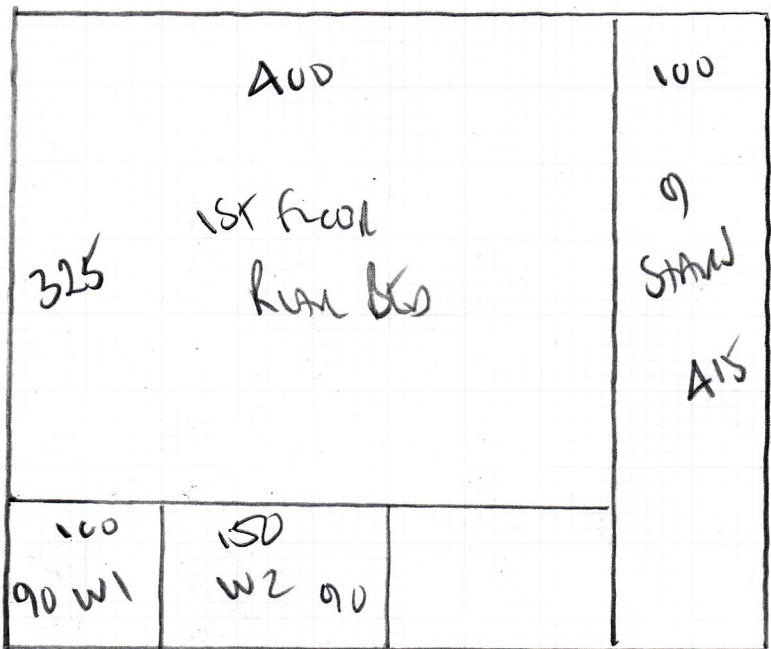 400
100
1ST FLOOR
REAR BED
325
9
STAIRS
415
100
90 W1
150
W2 90